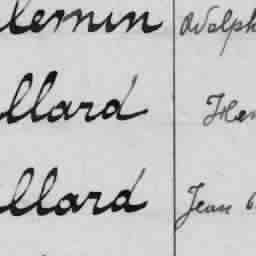 lemin Adolph
llard Hen
llard Jean